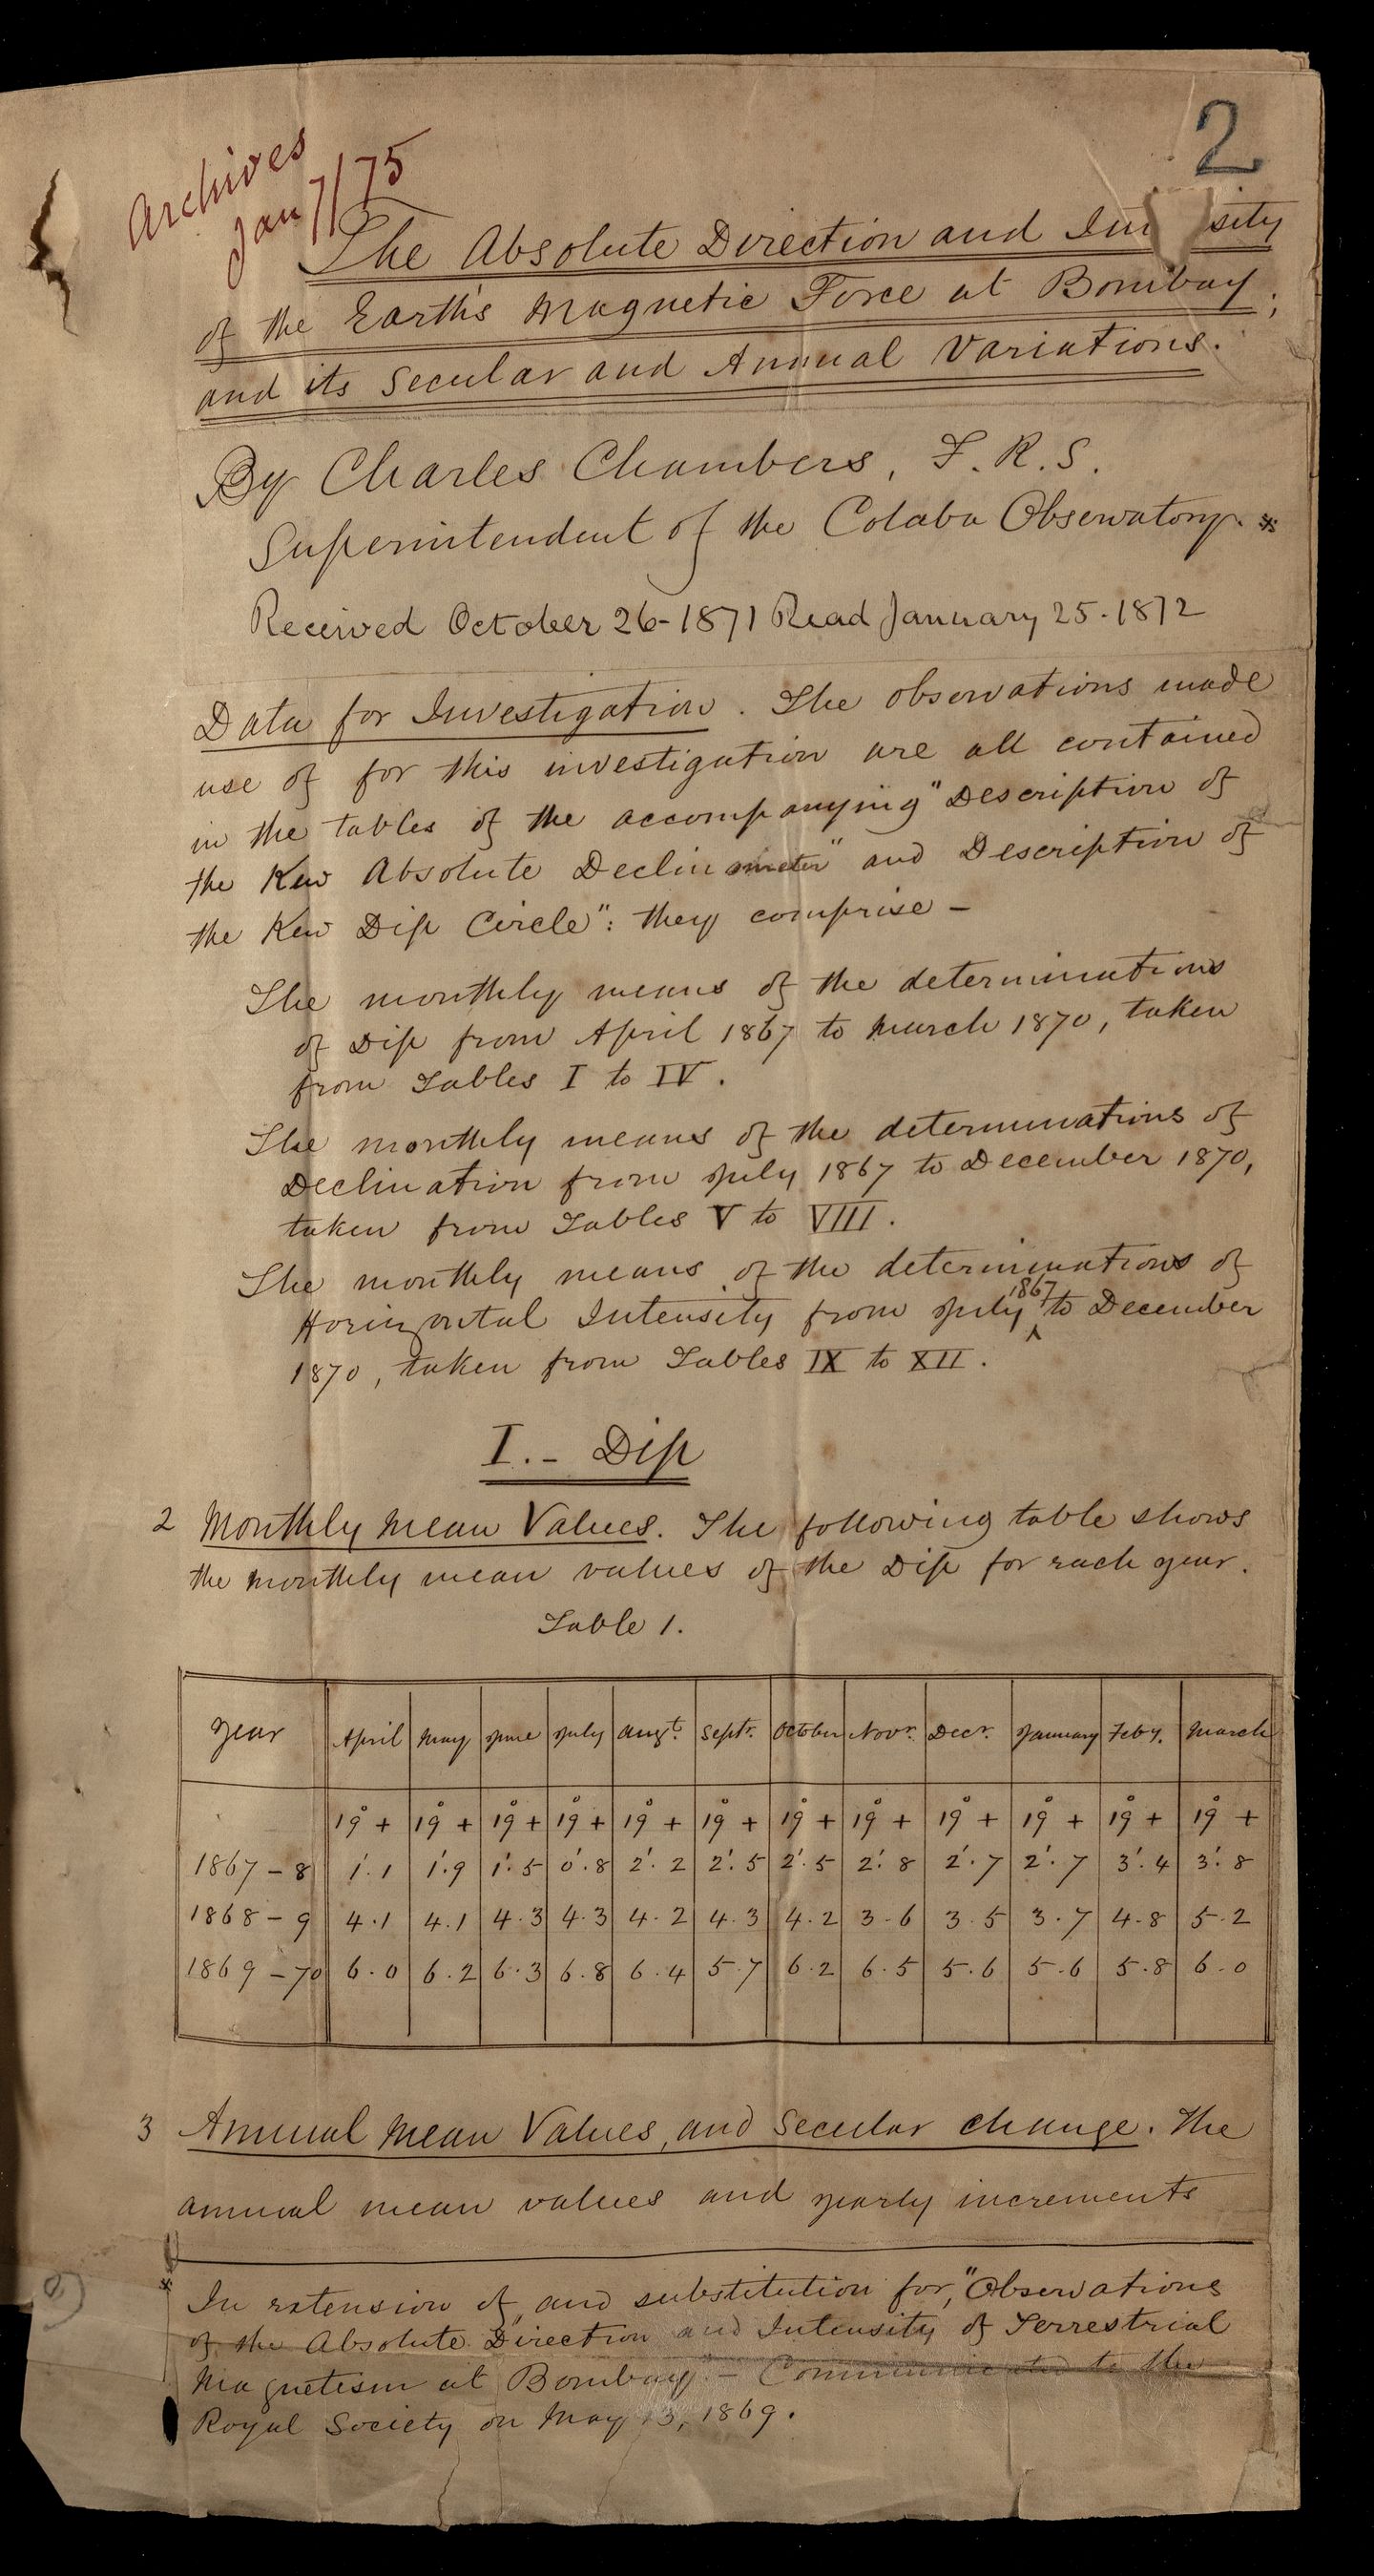 2
Archives
Jan 7/75
The Absolute Direction and In sity
of the Earth's Magnetic Force at Bombay;
and its Secular and Annual Variations.
By Charles Chambers, F.R.S.
Superintendent of the Colaba Observatory. *
Received October 26-1871 Read January 25.1872
Data for Investigation. The observations made
use of for this investigation are all contained
in the tables of the accompanying "Description of
the Kew Absolute Declinometer" and Description of
the Kew Dip Circle": they comprise –
The monthly means of the determinations
of Dip from April 1867 to March 1870, taken
from Tables I to IV.
The monthly means of the determinations of
Declination from July 1867 to December 1870,
taken from Tables V to VIII.
The monthly means of the determinations of
Horizontal Intensity from July 1867 to December
1870, taken from Tables IX to XII.
I. – Dip
2 Monthly Mean Values. The following table shows
the monthly mean values of the Dip for each year.
Table 1.
Year April May June July Augt. Septr. October Novr. Decr. January Feby. March
19° + 19° + 19° + 19° + 19° + 19° + 19° + 19° + 19° + 19° + 19° + 19° +
1867 – 8 1'.1 1'.9 1'.5 0'.8 2'.2 2'.5 2'.5 2'.8 2'.7 2'.7 3'.4 3'.8
1868 – 9 4.1 4.1 4.3 4.3 4.2 4.3 4.2 3.6 3.5 3.7 4.8 5.2
1869 – 70 6.0 6.2 6.3 6.8 6.4 5.7 6.2 6.5 5.6 5.6 5.8 6.0
3 Annual Mean Values, and Secular change. The
annual mean values and yearly increments
* In extension of, and substitution for, "Observations
of the Absolute Direction and Intensity of Terrestrial
Magnetism at Bombay" – Communicated to the
Royal Society on May 13, 1869.